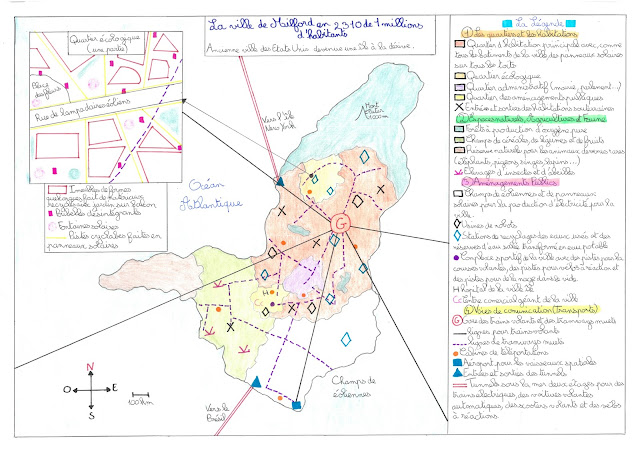 La ville de Milford en 2310 de 1 millions
d'habitants
Ancienne ville des Etats Unis devenue une île à la dérive.
Quartier écologique
(une partie)
Place
des fleurs
Rue de lampadaires éoliens
Immeubles de formes
recyclés avec jardins sur balcon
Poubelles désintégrantes
Fontaines solaires
Pistes cyclables faites en
panneaux solaires
Océan
Atlantique
Vers l'île
New York
Mont
G
H
C
Champs de
éoliennes
Vers le
Brésil
N
O
E
S
100 km
La Légende
1 Les quartiers et les habitations
Quartier d'habitation principal avec, comme
tous les bâtiments de la ville des panneaux solaires
sur tous les toits
Quartier écologique
Quartier administratif (mairie, parlement...)
Quartier des aménagements publiques
Entrées et sorties des habitations souterraines
2 Espaces naturels, Agricultures et Faune
Forêt à production d'oxygène pure
Champs de céréales, de légumes et de fruits
Réserve naturel pour les animaux devenus rares
(éléphants, pigeons, singes, lapins...)
Elevages d'insectes et d'abeilles
3 Aménagements Publics
Champs de éoliennes et de panneaux
solaires pour la production d'électricité pour la
ville.
Usines de robots
Stations de recyclages des eaux usés et des
réserves d'eau salée transformé en eau potable
Complexe sportif de la ville avec des pistes pour les
courses volantes, des pistes pour vélos à réaction et
des pistes pour de la nage dans le vide.
H Hôpital de la ville
C Centre comercial géant de la ville
4 Voies de comunication (transports)
G Gare des trains volants et des tramways muets
lignes pour trains volants
lignes de tramways muets
Cabines de téléportations
Aéroport pour les vaisseaux spatiales
Entrées et sorties des tunnels
Tunnels sous la mer deux étages pour des
trains electriques, des voitures volantes
automatiques, des scooters volants et des vélos
à réactions.